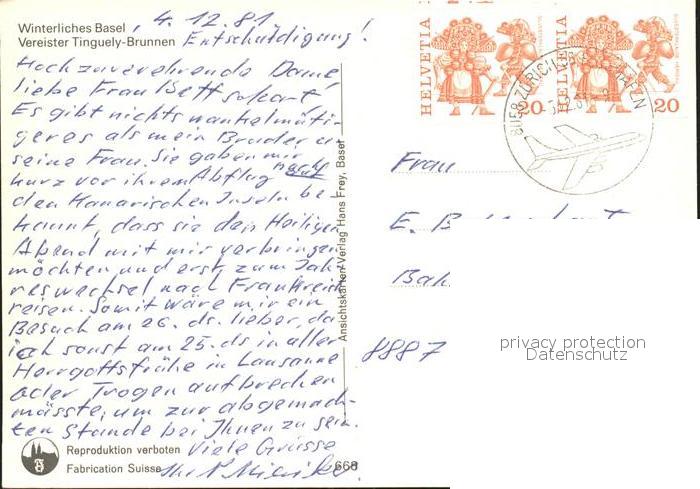 Winterliches Basel
Vereister Tinguely-Brunnen
4. 12. 81
Entschuldigung!
Hochzuverehrende Dame,
liebe Frau
Es gibt nichts wankelmüti-
geres als mein Bruder u.
seine Frau. Sie gaben mir
kurz vor ihrem Abflug nach
den Kanarischen Inseln be-
kannt, dass sie den Heiligen
Abend mit mir verbringen
möchten und erst zum Jah-
reswechsel nach Frankreich
reisen. Somit wäre mir ein
Besuch am 26. ds. lieber, da
ich sonst am 25. ds in aller
Herrgottsfrühe in Lausanne
oder Trogen aufbrechen
müsste, um zur abgemach-
ten Stunde bei Ihnen zu sein.
Viele Grüsse
Ihr
Reproduktion verboten
Fabrication Suisse
668
Ansichtskarten-Verlag Hans Frey, Basel
HELVETIA
20
HELVETIA
20
8058 ZÜRICH
Frau
E. B
Bah
8887
privacy protection
Datenschutz